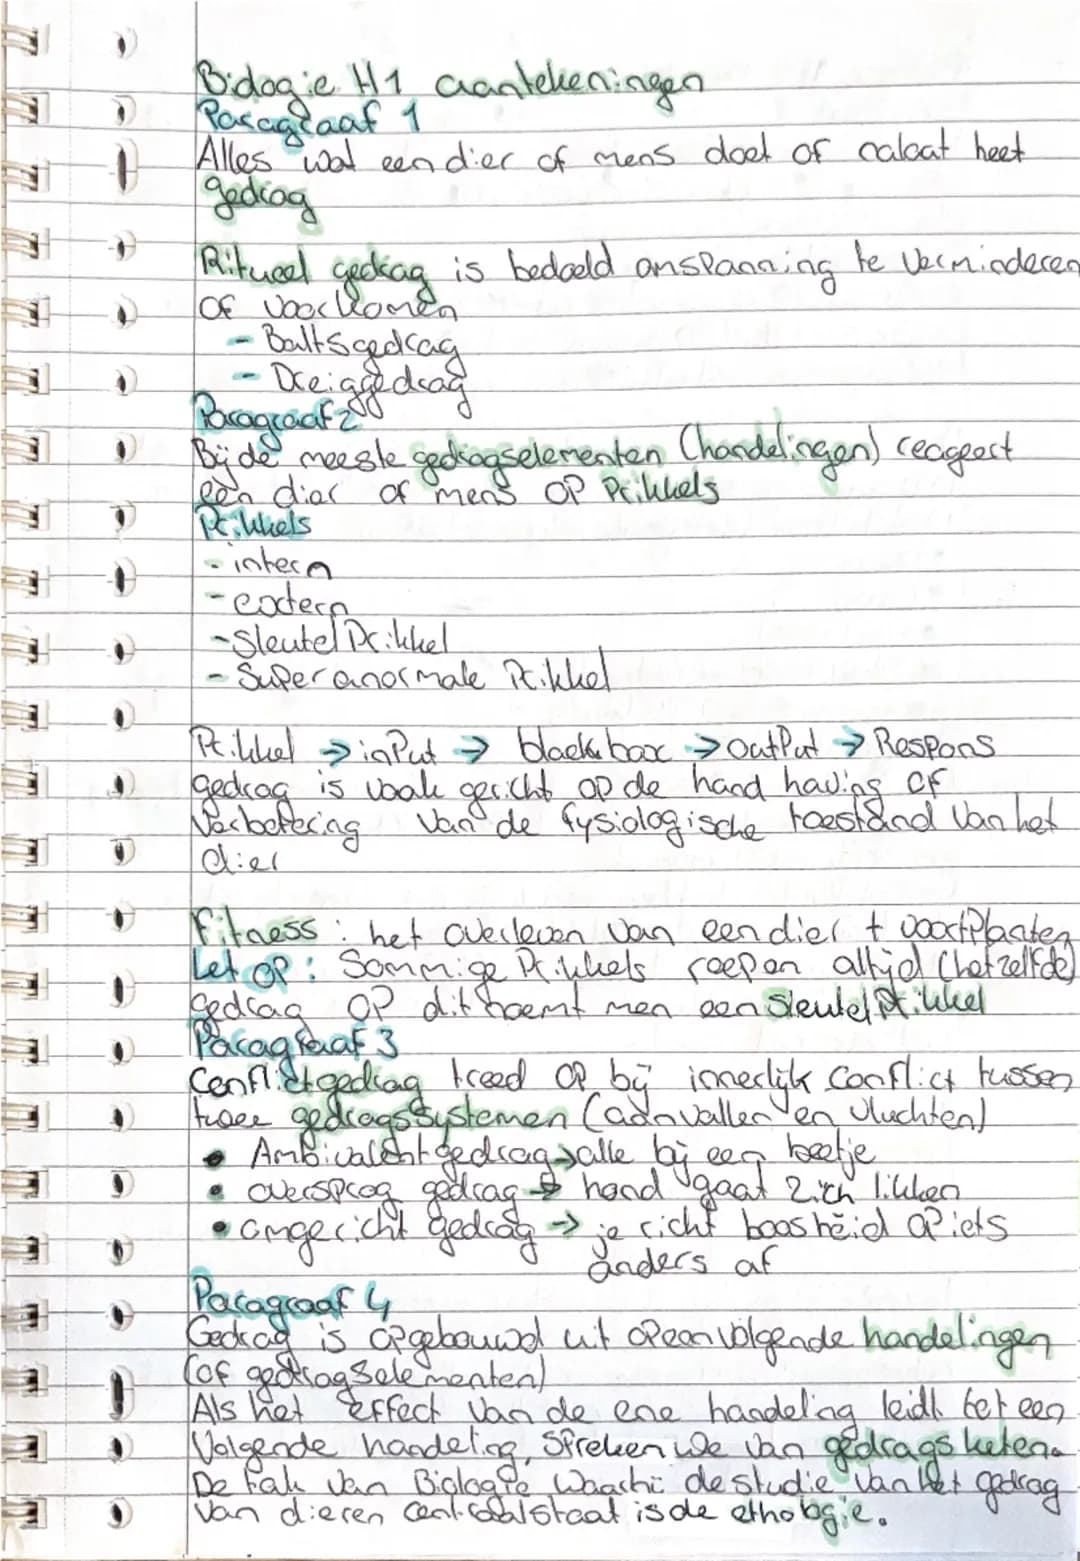 Biologie H1 aantekeningen
Paragraaf 1
Alles wat een dier of mens doet of nalaat heet
gedrag
Ritueel gedrag is bedoeld om spanning te verminderen
of voorkomen
- Baltsgedrag
- Dreiggedrag
Paragraaf 2
Bij de meeste gedragselementen (handelingen) reageert
een dier of mens op Prikkels
Prikkels
- intern
- extern
- Sleutel Prikkel
- Super anormale Prikkel
Prikkel → inPut → black box → outPut → Respons
gedrag is vaak gericht op de hand having of
Verbetering van de fysiologische toestand van het
dier
Fitness : het overleven van een dier + voortPlanten
Let op : Sommige Prikkels roepen altijd (hetzelfde)
gedrag op dit noemt men een Sleutel Prikkel
Paragraaf 3
Conflictgedrag treed op bij innerlijk conflict tussen
twee gedragssystemen (aanvallen en vluchten)
• Ambivalent gedrag → alle bij een beetje
• oversprog gedrag → hond gaat zich likken
• omgericht gedrag → je richt boosheid op iets
anders af
Paragraaf 4
Gedrag is opgebouwd uit opeenvolgende handelingen
(of gedragselementen)
Als het effect van de ene handeling leidt tot een
Volgende handeling, spreken we van gedragsketen.
De tak van Biologie waarbij de studie van het gedrag
van dieren centraal staat is de ethologie.